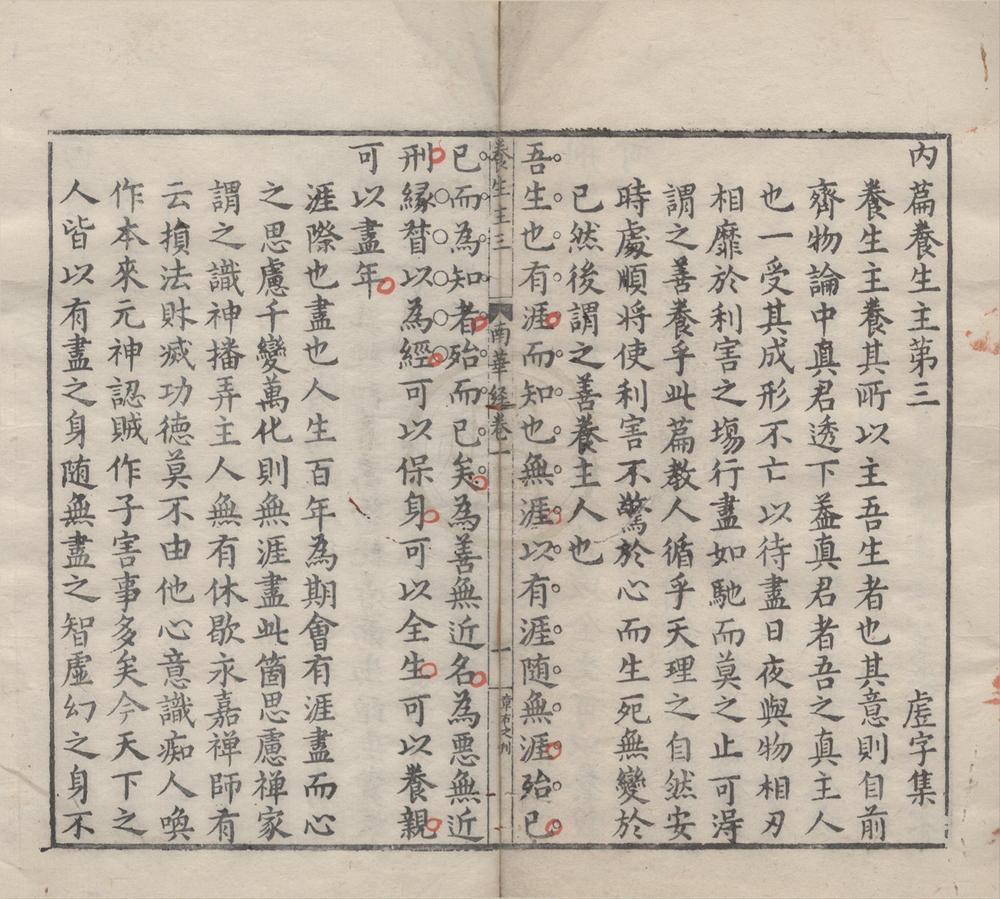 内篇養生主第三　虗字集
養生主養其所以主吾生者也其意則自前
齊物論中真君透下葢真君者吾之真主人
也一受其成形不亡以待盡日夜與物相刃
相靡於利害之塲行盡如馳而莫之止可淂
謂之善養乎此篇教人循乎天理之自然安
時處順將使利害不驚於心而生死無變於
已然後謂之善養主人也
吾生也有涯而知也無涯以有涯随無涯殆已
養生主三　南華經卷一　一
已而為知者殆而已矣為善無近名為惡無近
刑縁督以為經可以保身可以全生可以養親
可以盡年
涯際也盡也人生百年為期會有涯盡而心
之思慮千變萬化則無涯盡此箇思慮禅家
謂之識神播弄主人無有休歇永嘉禅師有
云損法財滅功德莫不由他心意識痴人喚
作本來元神認賊作子害事多矣今天下之
人皆以有盡之身随無盡之智虛幻之身不